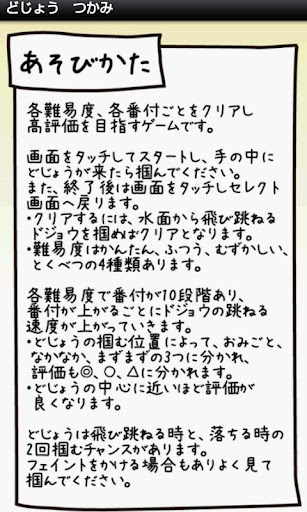 どじょう　つかみ
あそびかた
各難易度、各番付ごとをクリアし
高評価を目指すゲームです。
画面をタッチしてスタートし、手の中に
どじょうが来たら掴んでください。
また、終了後は画面をタッチしセレクト
画面へ戻ります。
・クリアするには、水面から飛び跳ねる
ドジョウを掴めばクリアとなります。
・難易度はかんたん、ふつう、むずかしい、
とくべつの4種類あります。
各難易度で番付が10段階あり、
番付が上がるごとにドジョウの跳ねる
速度が上がっていきます。
・どじょうの掴む位置によって、おみごと、
なかなか、まずまずの3つに分かれ、
評価も◎、○、△に分かれます。
・どじょうの中心に近いほど評価が
良くなります。
どじょうは飛び跳ねる時と、落ちる時の
2回掴むチャンスがあります。
フェイントをかける場合もありよく見て
掴んでください。